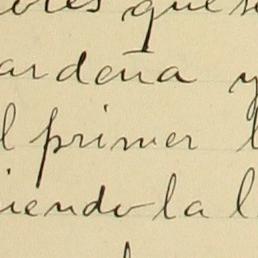 ores que se
ardeña y
l primer l
iendo la l